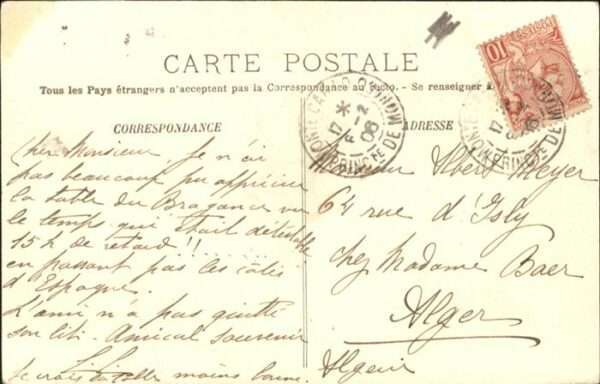 CARTE POSTALE
Tous les Pays étrangers n'acceptent pas la Correspondance au Recto. - Se renseigner à
CORRESPONDANCE
ADRESSE
MONTE CARLO
PRINC TÉ DE MONACO
10
Cher Monsieur, Je n'ai
pas beaucoup pu apprécier
la table du Bragance vu
le temps qui était détestable
15 h de retard!!
en passant pas les côtes
d'Espagne.
L'ami n'a pas quitté
son lit. Amical souvenir
Je crois la table moins bonne.
Monsieur Albert Meyer
64 rue d'Isly
chez Madame Baer
Alger
Algerie